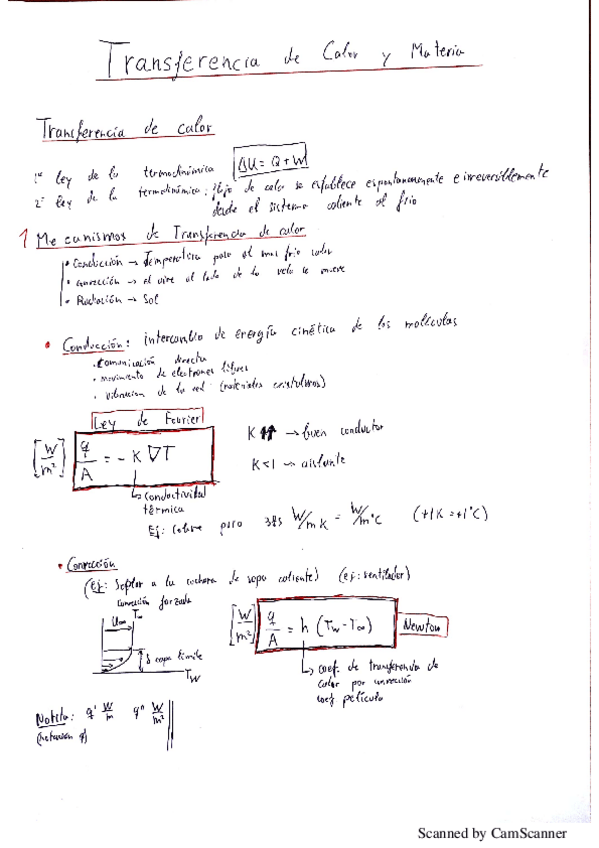 Transferencia de Calor y Materia
Transferencia de calor
1ª Ley de la termodinámica ΔU = Q + W
2ª Ley de la termodinámica: flujo de calor se establece espontaneamente e irreversiblemente
desde el sistema caliente al frio
1 Mecanismos de Transferencia de calor
• Conducción → Temperatura para el mas frio calor
• Convección → el aire al lado de la vela se mueve
• Radiación → Sol
• Conducción: intercambio de energía cinética de las moléculas
• comunicación directa
• movimiento de electrones libres
• vibracion de la red (materiales cristalinos)
Ley de Fourier
[W/m²] q/A = - K ∇T
K ⇈ → buen conductor
K<1 → aislante
↳ conductividad
térmica
Ej: Cobre para 385 W/mK = W/m°C (+1K = +1°C)
• Convección
(Ej: Soplar a la cuchara de sopa caliente) (ej: ventilador)
convección forzada
U∞ T∞
δ capa límite
Tw
[W/m²] q/A = h (Tw - T∞) Newton
↳ coef. de transferencia de
calor por convección
coef. película
Notita: q' W/m q'' W/m²
(notacion q)
Scanned by CamScanner